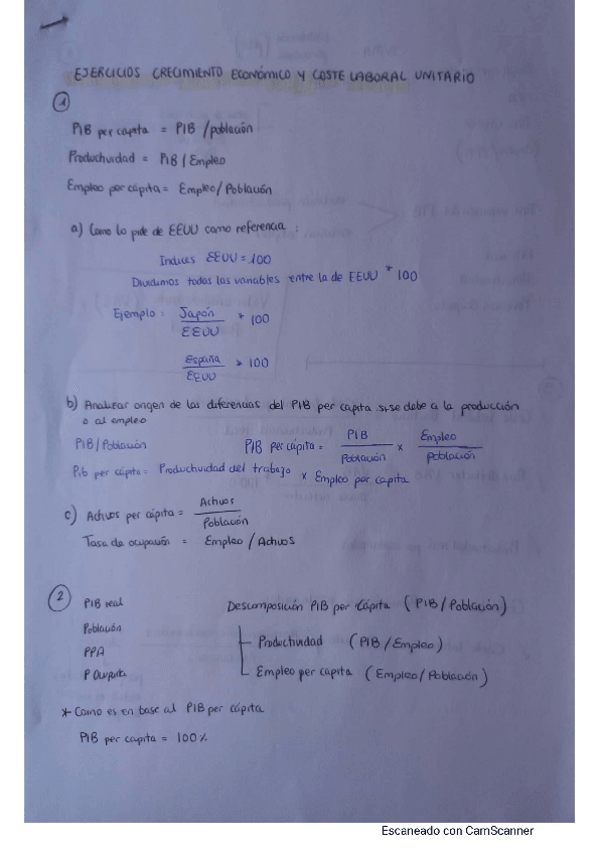 EJERCICIOS CRECIMIENTO ECONÓMICO Y COSTE LABORAL UNITARIO
1
PIB per capita = PIB / población
Productividad = PIB / Empleo
Empleo per cápita = Empleo / Población
a) Como lo pide de EEUU como referencia :
Indices EEUU = 100
Dividimos todas las variables entre la de EEUU * 100
Ejemplo : Japón / EEUU * 100
España / EEUU * 100
b) Analizar origen de las diferencias del PIB per capita si se debe a la producción
o al empleo
PIB / Población PIB per cápita = PIB / Población x Empleo / población
Pib per cápita = Productividad del trabajo x Empleo per capita
c) Activos per cápita = Activos / Población
Tasa de ocupación = Empleo / Activos
2 PIB real Descomposición PIB per Cápita ( PIB / Población )
Población
Productividad ( PIB / Empleo )
PPA
P Ocupada Empleo per capita ( Empleo / Población )
* Como es en base al PIB per cápita
PIB per capita = 100%
Escaneado con CamScanner